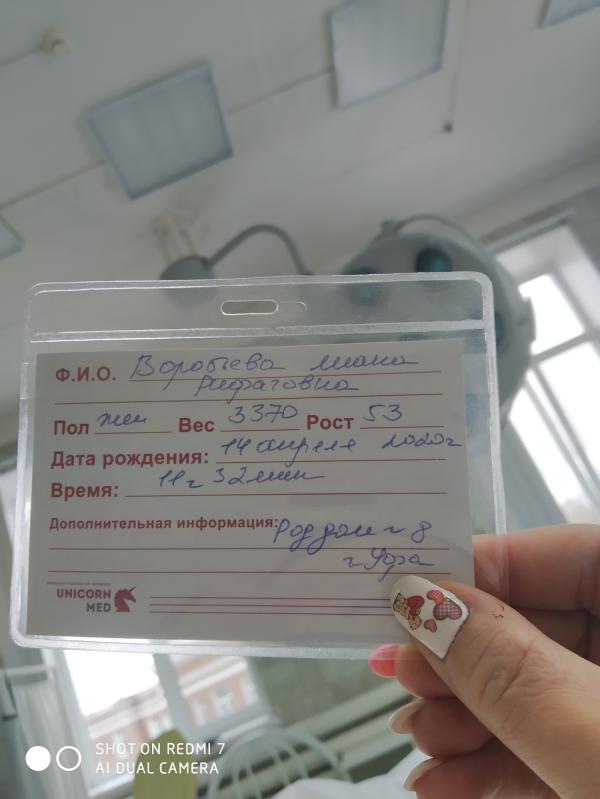 Ф.И.О. Воробьева Лиана
Рифатовна
Пол жен Вес 3370 Рост 53
Дата рождения: 14 апреля 2020г
Время: 11ч 32мин
Дополнительная информация: Роддом №8
г Уфа
UNICORN
MED
SHOT ON REDMI 7
AI DUAL CAMERA